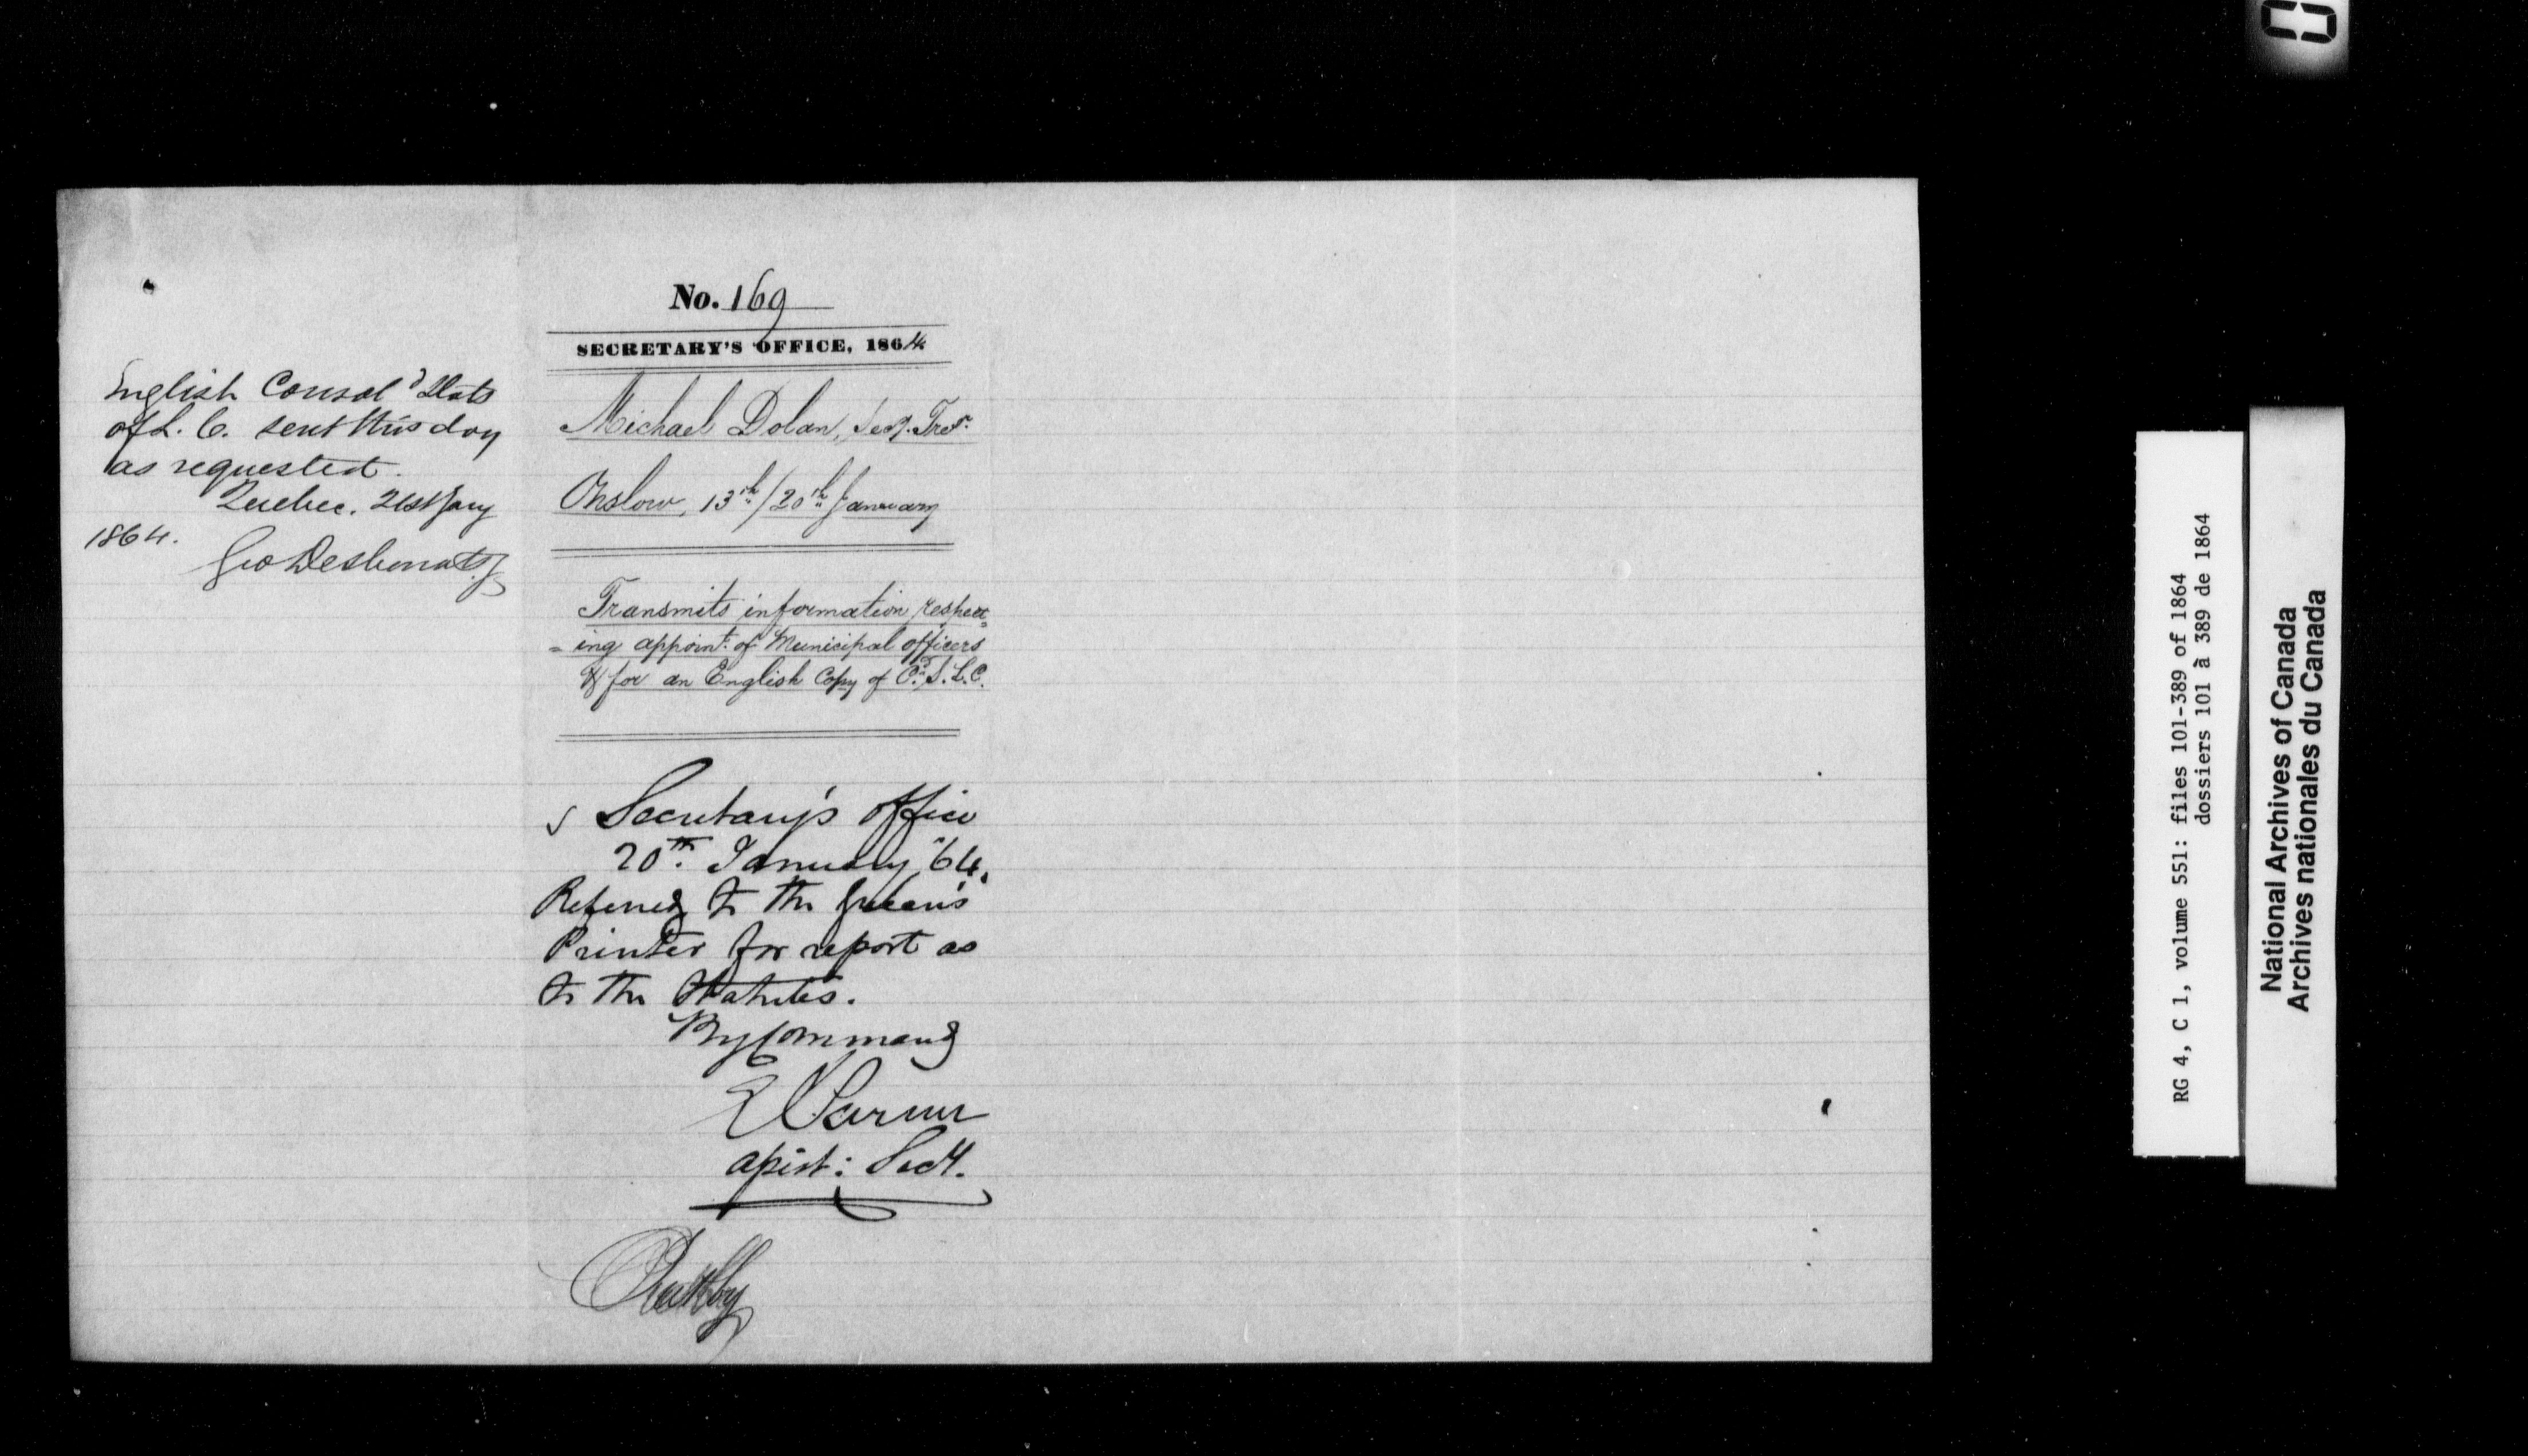 English Consol<sup>d</sup> Stats
of L. C. sent this day
as requested.
Quebec. 21st Jany
1864.
Geo Desbarats
No. 169
SECRETARY'S OFFICE, 1864
Michael Dolan, Secy. Tres<sup>r</sup>.
Onslow, 13<sup>th</sup>/20<sup>th</sup> January
Transmits information respect=
=ing appoint<sup>t</sup>. of Municipal officers
& for an English Copy of C.S.L.C.
Secretary's Office
20<sup>th</sup>. January '64.
Referred to the Queen's
Printer for report as
to the Statutes.
By Command
E Parent
Assist: Secy.
RG 4, C 1, volume 551: files 101-389 of 1864
dossiers 101 à 389 de 1864
National Archives of Canada
Archives nationales du Canada